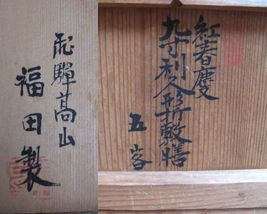 紅春慶
九寸利久形折敷膳
五客
飛騨高山
福田製